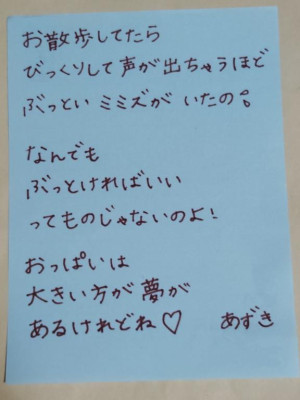 お散歩してたら
びっくりして声が出ちゃうほど
ぶっといミミズがいたの。
なんでも
ぶっとければいい
ってものじゃないのよ!
おっぱいは
大きい方が夢が
あるけれどね♡ あずき